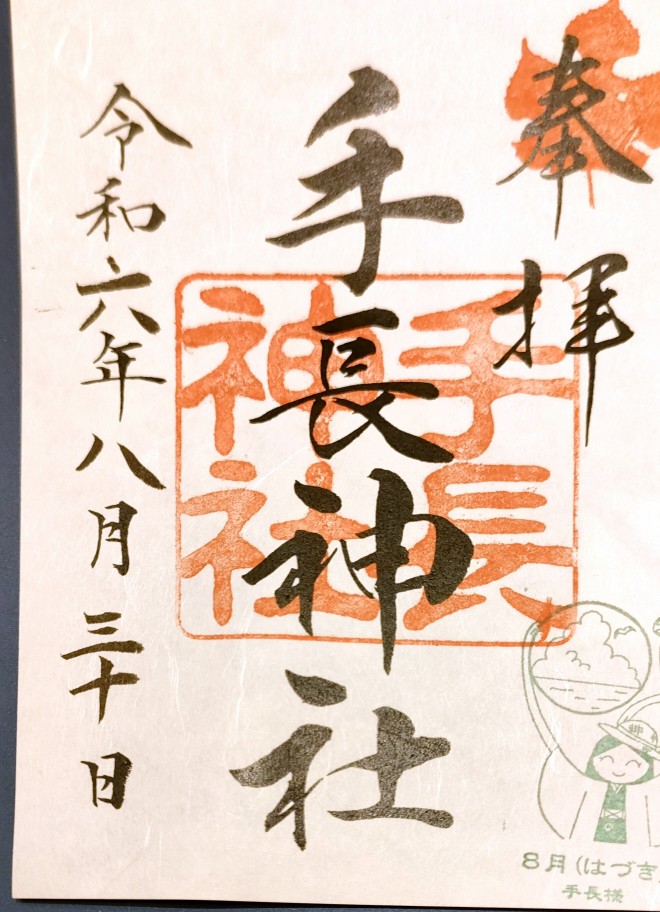 奉拝
手長神社
手長
神社
令和六年八月三十日
8月(はづき
手長様